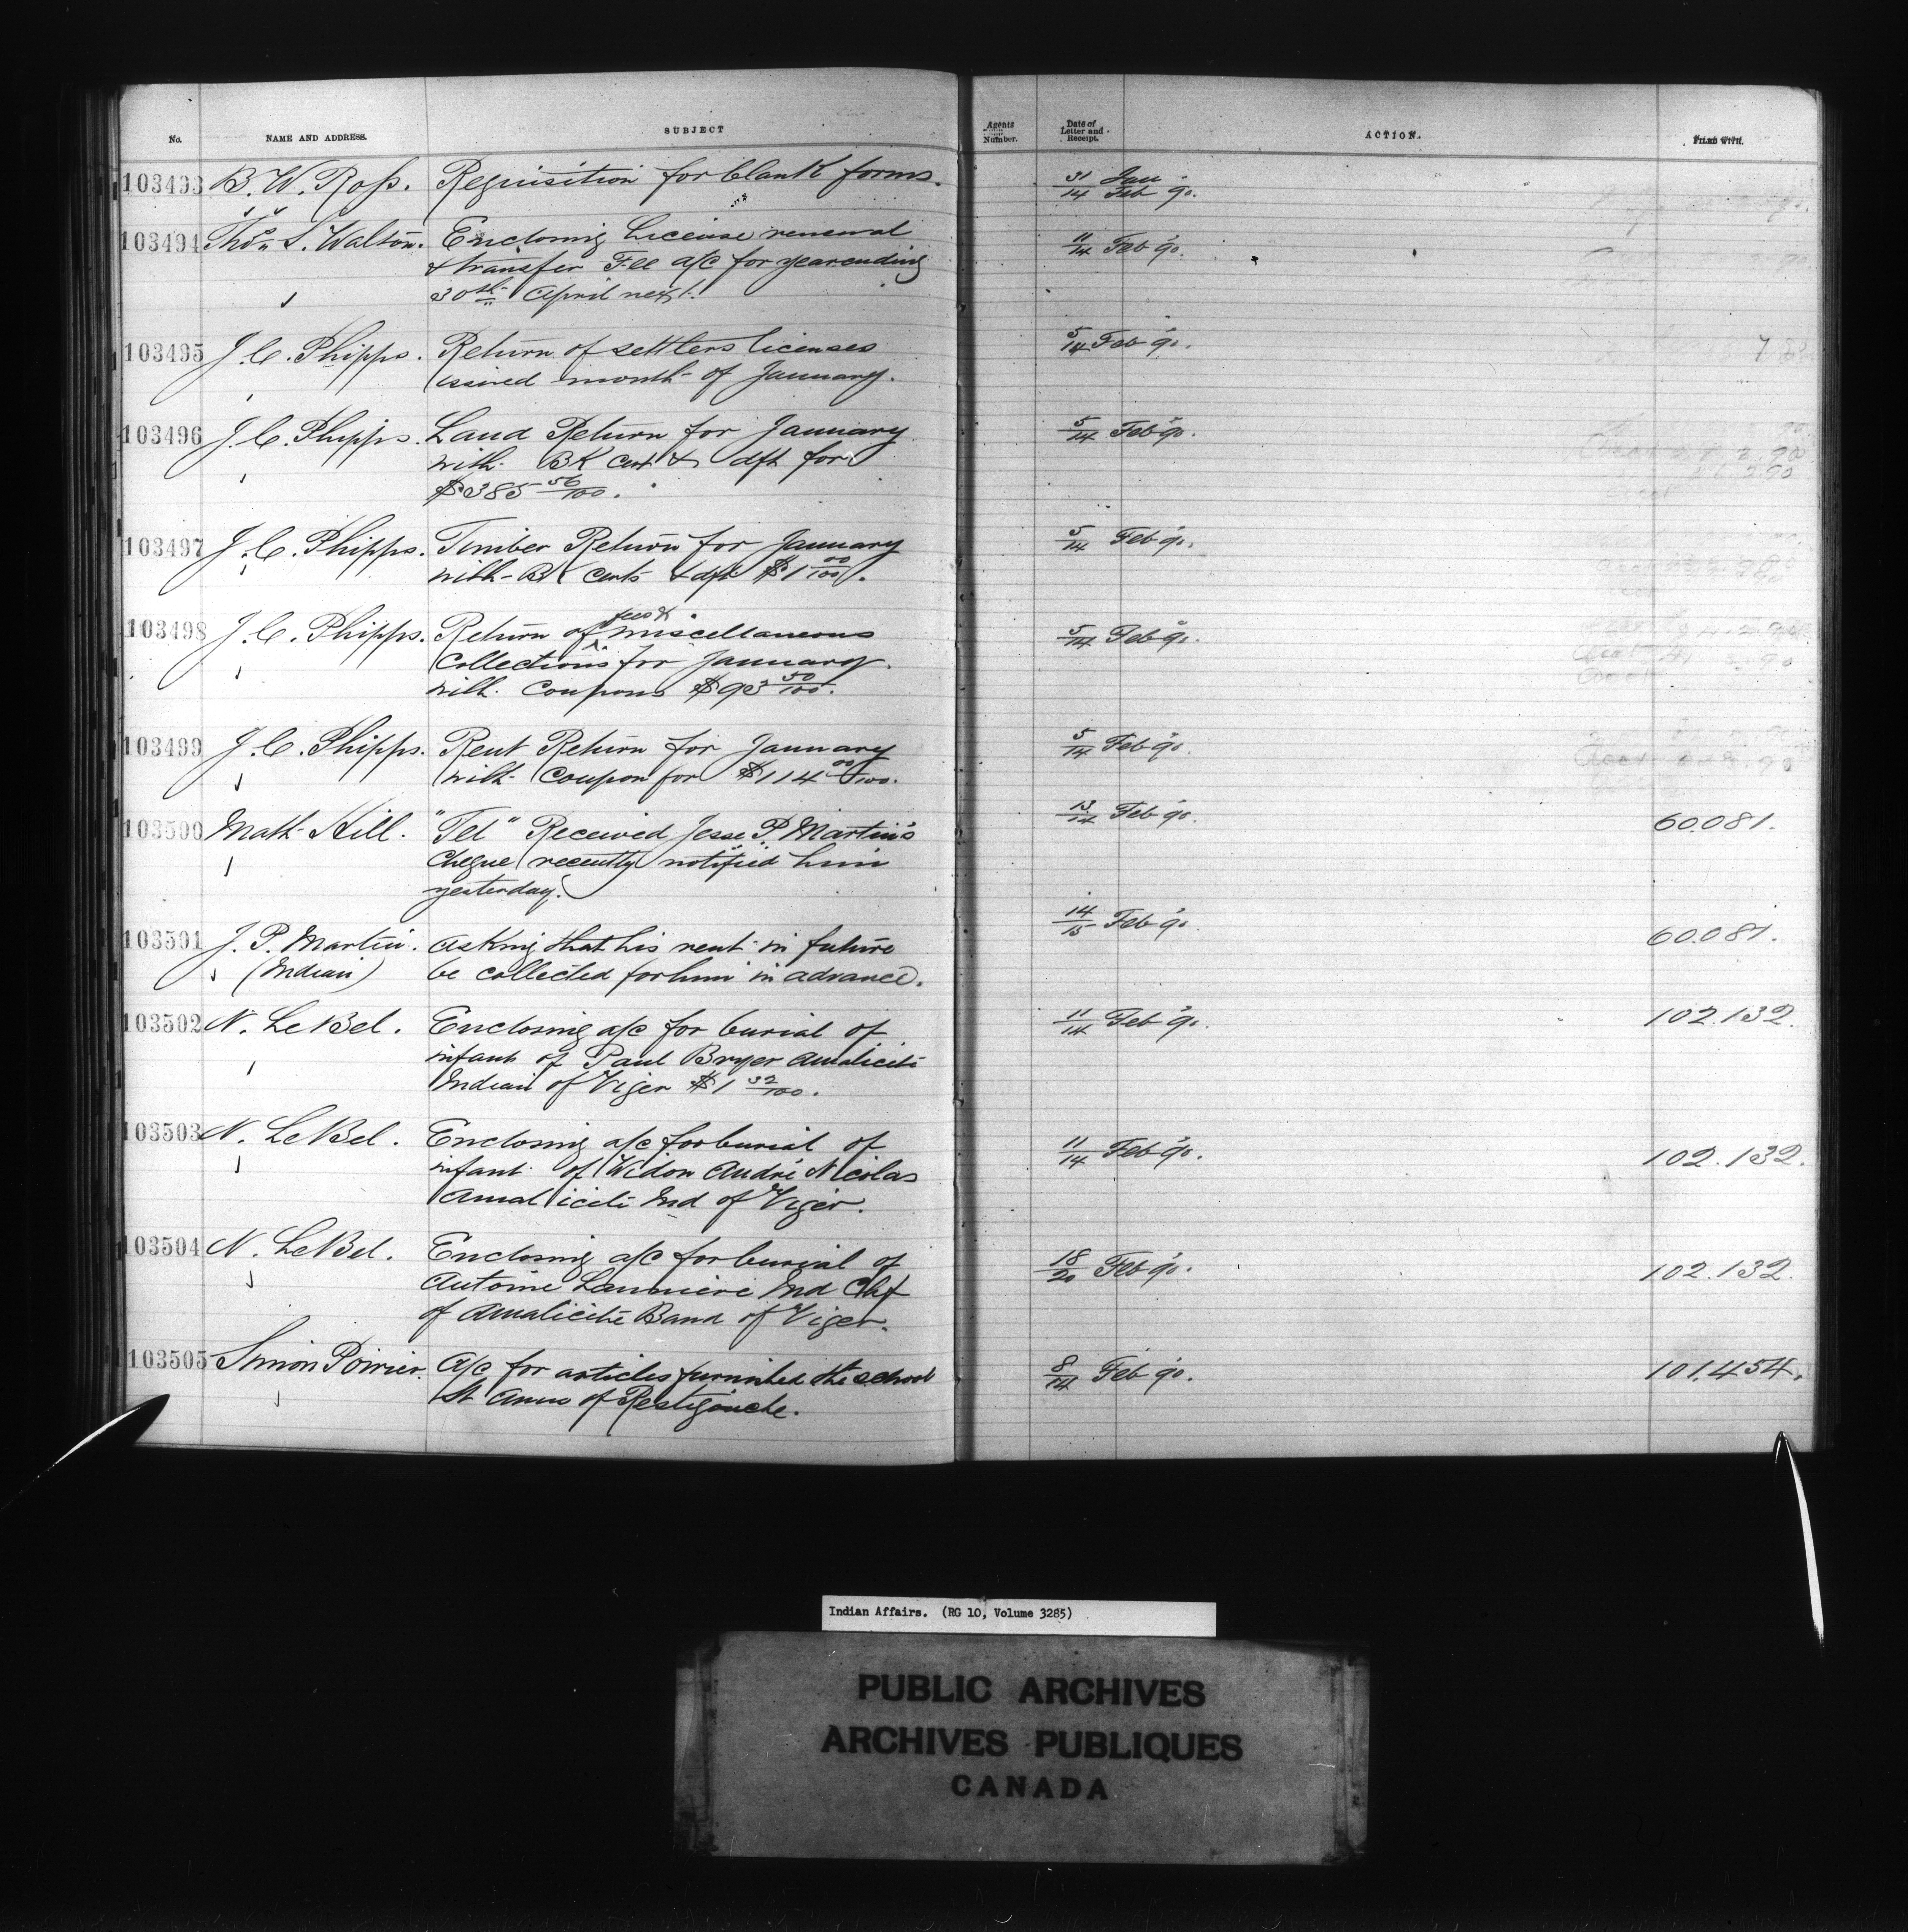 No. NAME AND ADDRESS. SUBJECT Agents Number. Date of Letter and Receipt. ACTION. FILED WITH.
103493 B. W. Ross. Requisition for blank forms. 31/14 Jan/Feb 90.
103494 Thos. S. Walton. Enclosing License renewal 11/14 Feb 90.
& transfer Fee a/c for year ending
30th April next.
103495 J. C. Phipps. Return of settlers licenses 5/14 Feb 90.
issued month of January.
103496 J. C. Phipps. Land Return for January 5/14 Feb 90.
with BK cert & dft for
$385 56/100.
103497 J. C. Phipps. Timber Return for January 5/14 Feb 90.
with BK certs & dft $1 00/100.
103498 J. C. Phipps. Return of fees & miscellaneous 5/14 Feb 90.
Collections for January
with Coupons $93 50/100.
103499 J. C. Phipps. Rent Return for January 5/14 Feb 90.
with Coupon for $114 00/100.
103500 Math Hill. "Tel" Received Jesse P. Martin's 13/14 Feb 90. 60.081.
Cheque recently notified him
yesterday.
103501 J. P. Martin. Asking that his rent in future 14/15 Feb 90. 60.081.
(Indian) be collected for him in advance.
103502 N. LeBel. Enclosing a/c for burial of 11/14 Feb 90. 102.132.
infant of Paul Bryer Amalicite
Indian of Viger $1 32/100.
103503 N. LeBel. Enclosing a/c for burial of 11/14 Feb 90. 102.132.
infant of Widow André Nicolas
Amalicite Ind of Viger.
103504 N. LeBel. Enclosing a/c for burial of 18/20 Feb 90. 102.132.
Antoine Launiere Ind Chf
of Amalicite Band of Viger.
103505 Simon Poirier. A/c for articles furnished the school 8/14 Feb 90. 101.454.
St Anns of Restigouche.
Indian Affairs. (RG 10, Volume 3285)
PUBLIC ARCHIVES
ARCHIVES PUBLIQUES
CANADA